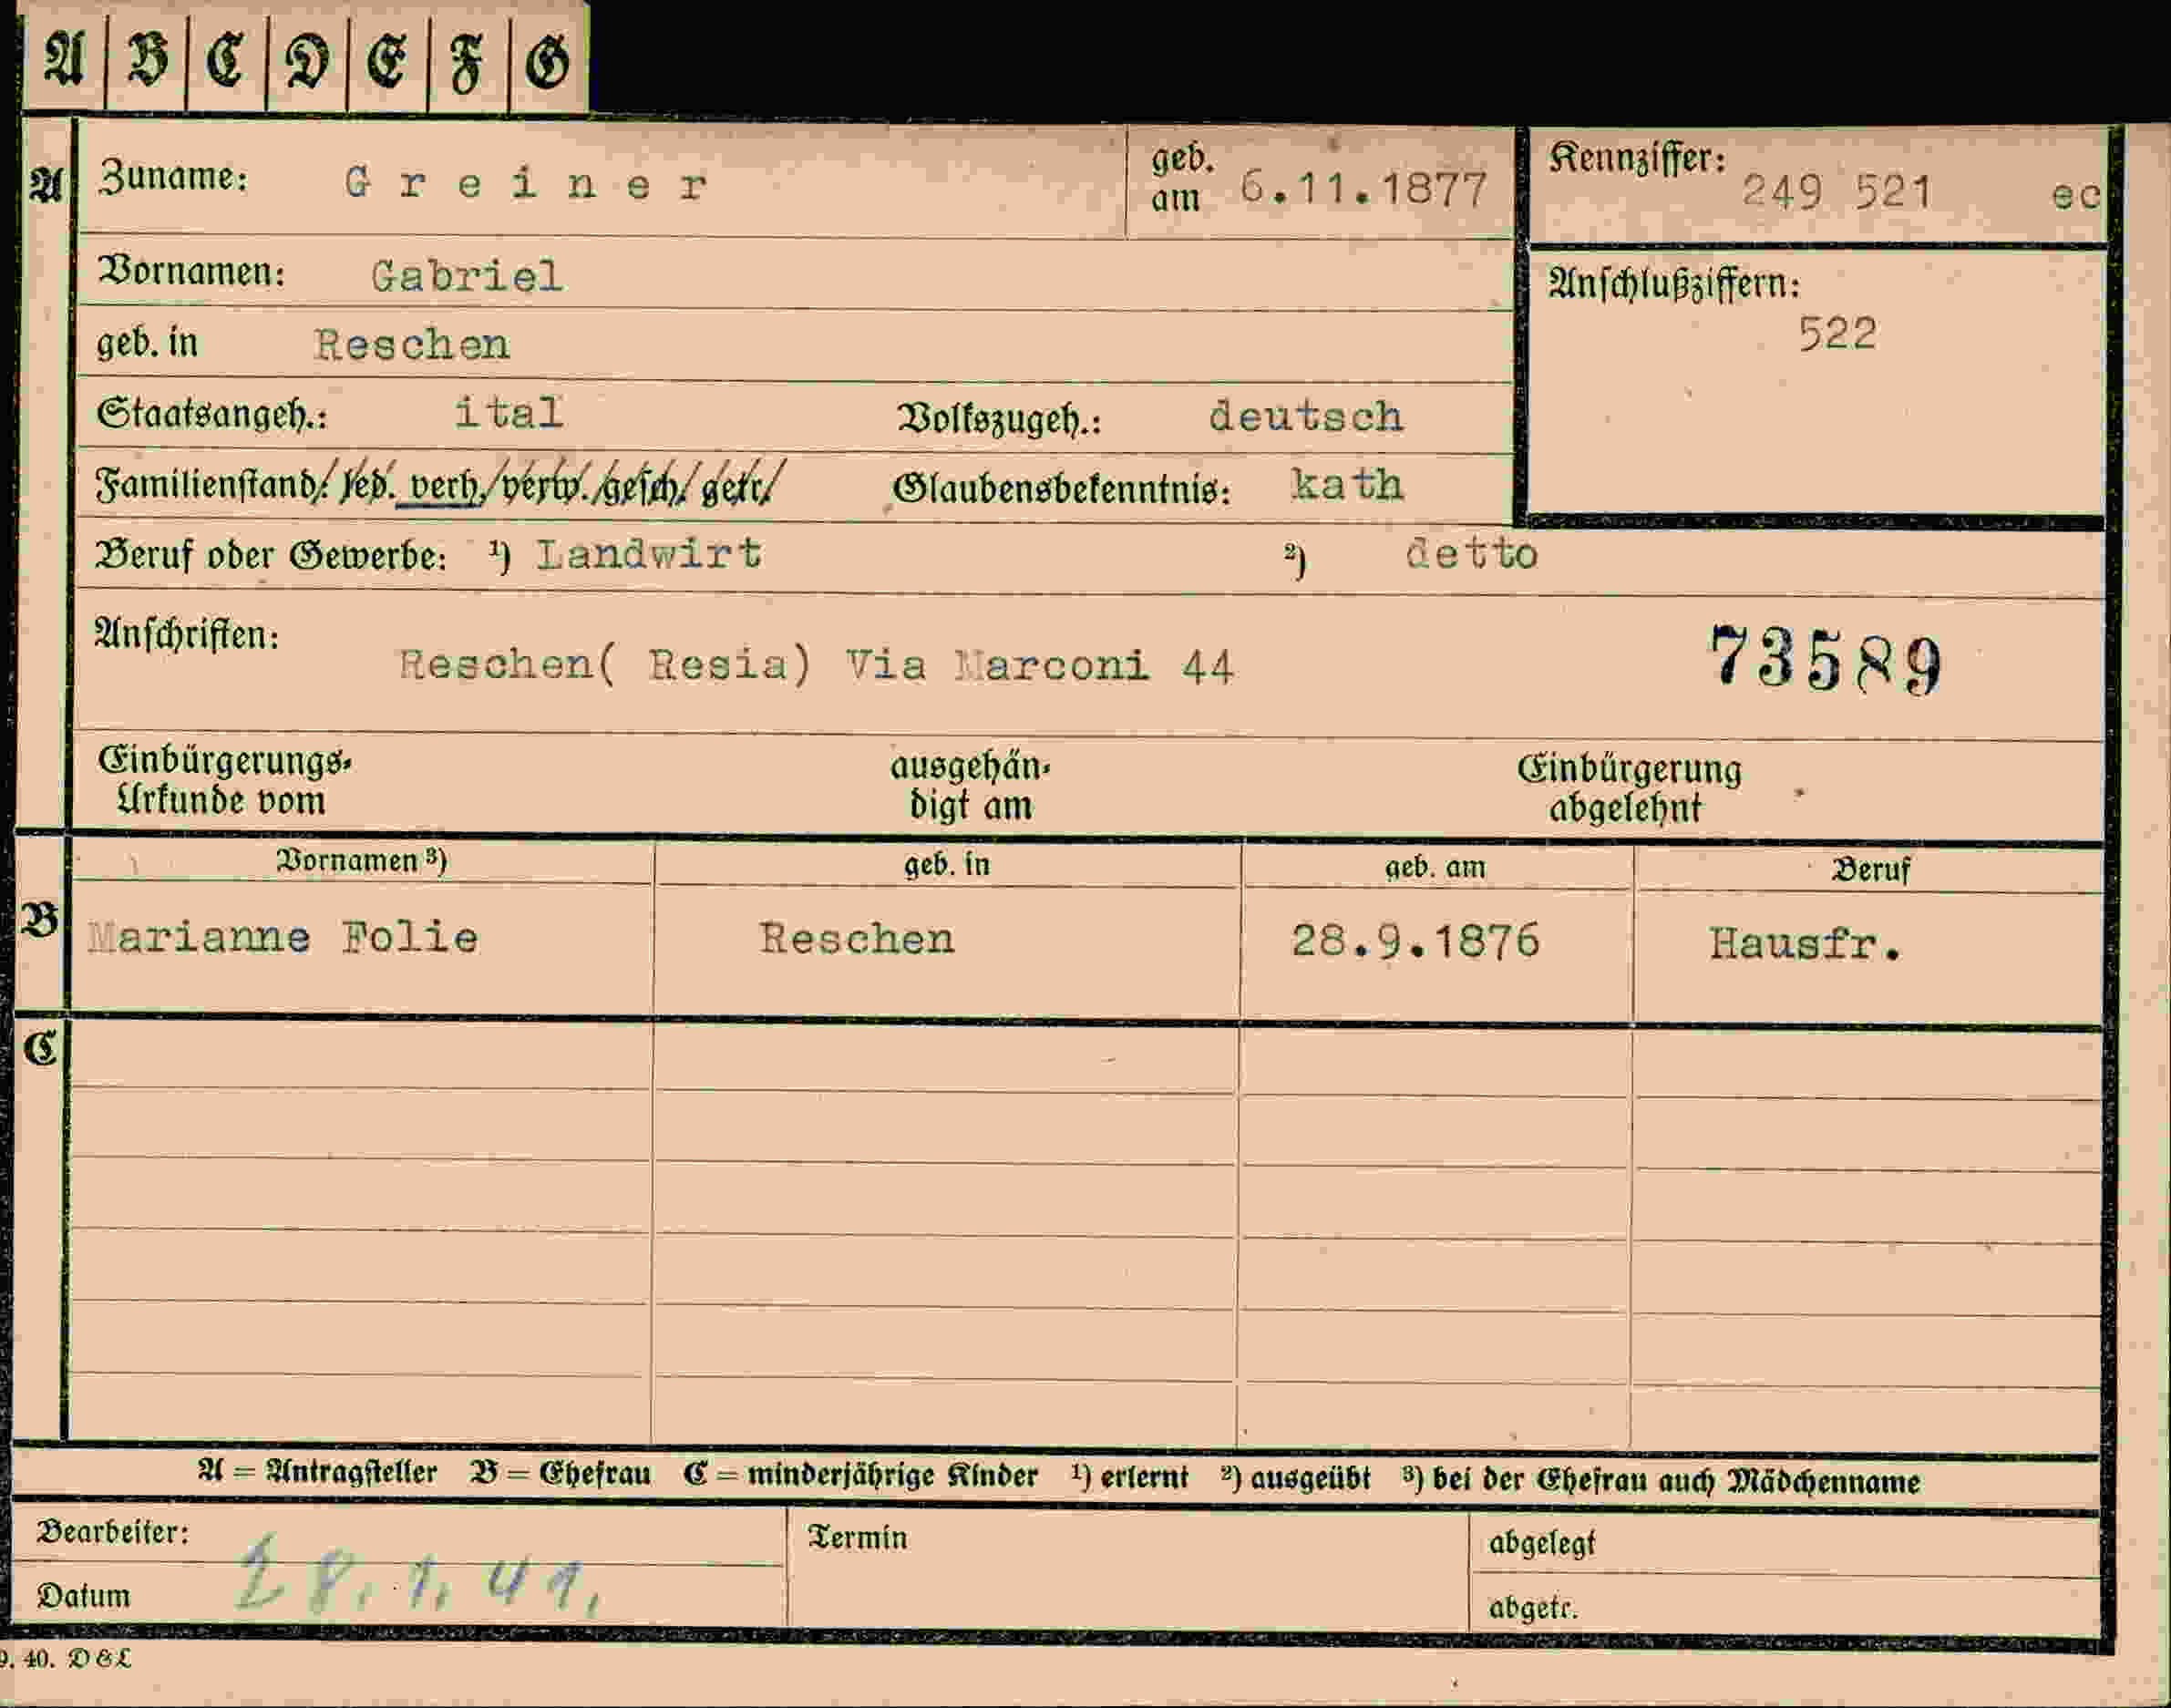 A B C D E F G
A Zuname: Greiner geb. am 6.11.1877 Kennziffer: 249 521 ec
Vornamen: Gabriel Anschlußziffern:
geb. in Reschen 522
Staatsangeh.: ital Volkszugeh.: deutsch
Familienstand/ led. verh./verw./gesch/getr/ Glaubensbekenntnis: kath
Beruf oder Gewerbe: ¹) Landwirt ²) detto
Anschriften: Reschen( Resia) Via Marconi 44 73589
Einbürgerungs- ausgehän- Einbürgerung
Urkunde vom digt am abgelehnt
Vornamen ³) geb. in geb. am Beruf
B Marianne Folie Reschen 28.9.1876 Hausfr.
C
A = Antragsteller B = Ehefrau C = minderjährige Kinder ¹) erlernt ²) ausgeübt ³) bei der Ehefrau auch Mädchenname
Bearbeiter: Termin abgelegt
Datum 28.1.41. abgetr.
9. 40. D&L